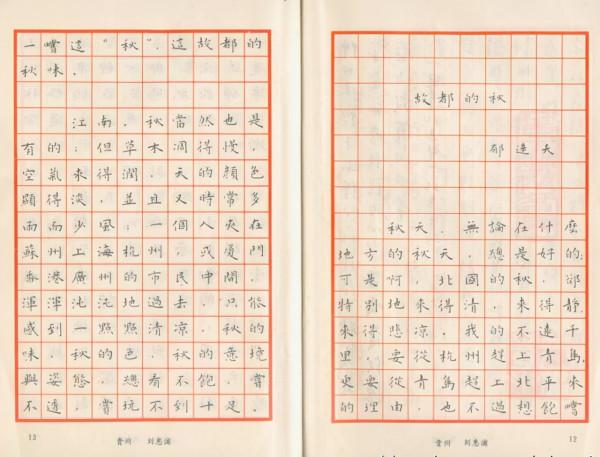 故都的秋
郁達夫
秋天，無論在什麼
地方的秋天，總是好的；
可是啊，北國的秋，卻
特別地來得清，來得靜，
來得悲涼。我的不遠千
里，要從杭州趕上青島，
更要從青島趕上北平來
的理由，也不過想飽嚐
12
貴州 刘惠浦
一嚐這“秋”，這故都的
秋味。
江南，秋當然也是
有的；但草木凋得慢，
空氣來得潤，天的顏色
顯得淡，並且又時常多
雨而少風；一個人夾在
蘇州上海杭州，或廈門
香港廣州的市民中間，
渾渾沌沌地過去，只能
感到一點點清涼，秋的
味，秋的色，秋的意境
與姿態，總看不飽，嘗
不透，賞玩不到十足。
13
貴州 刘惠浦